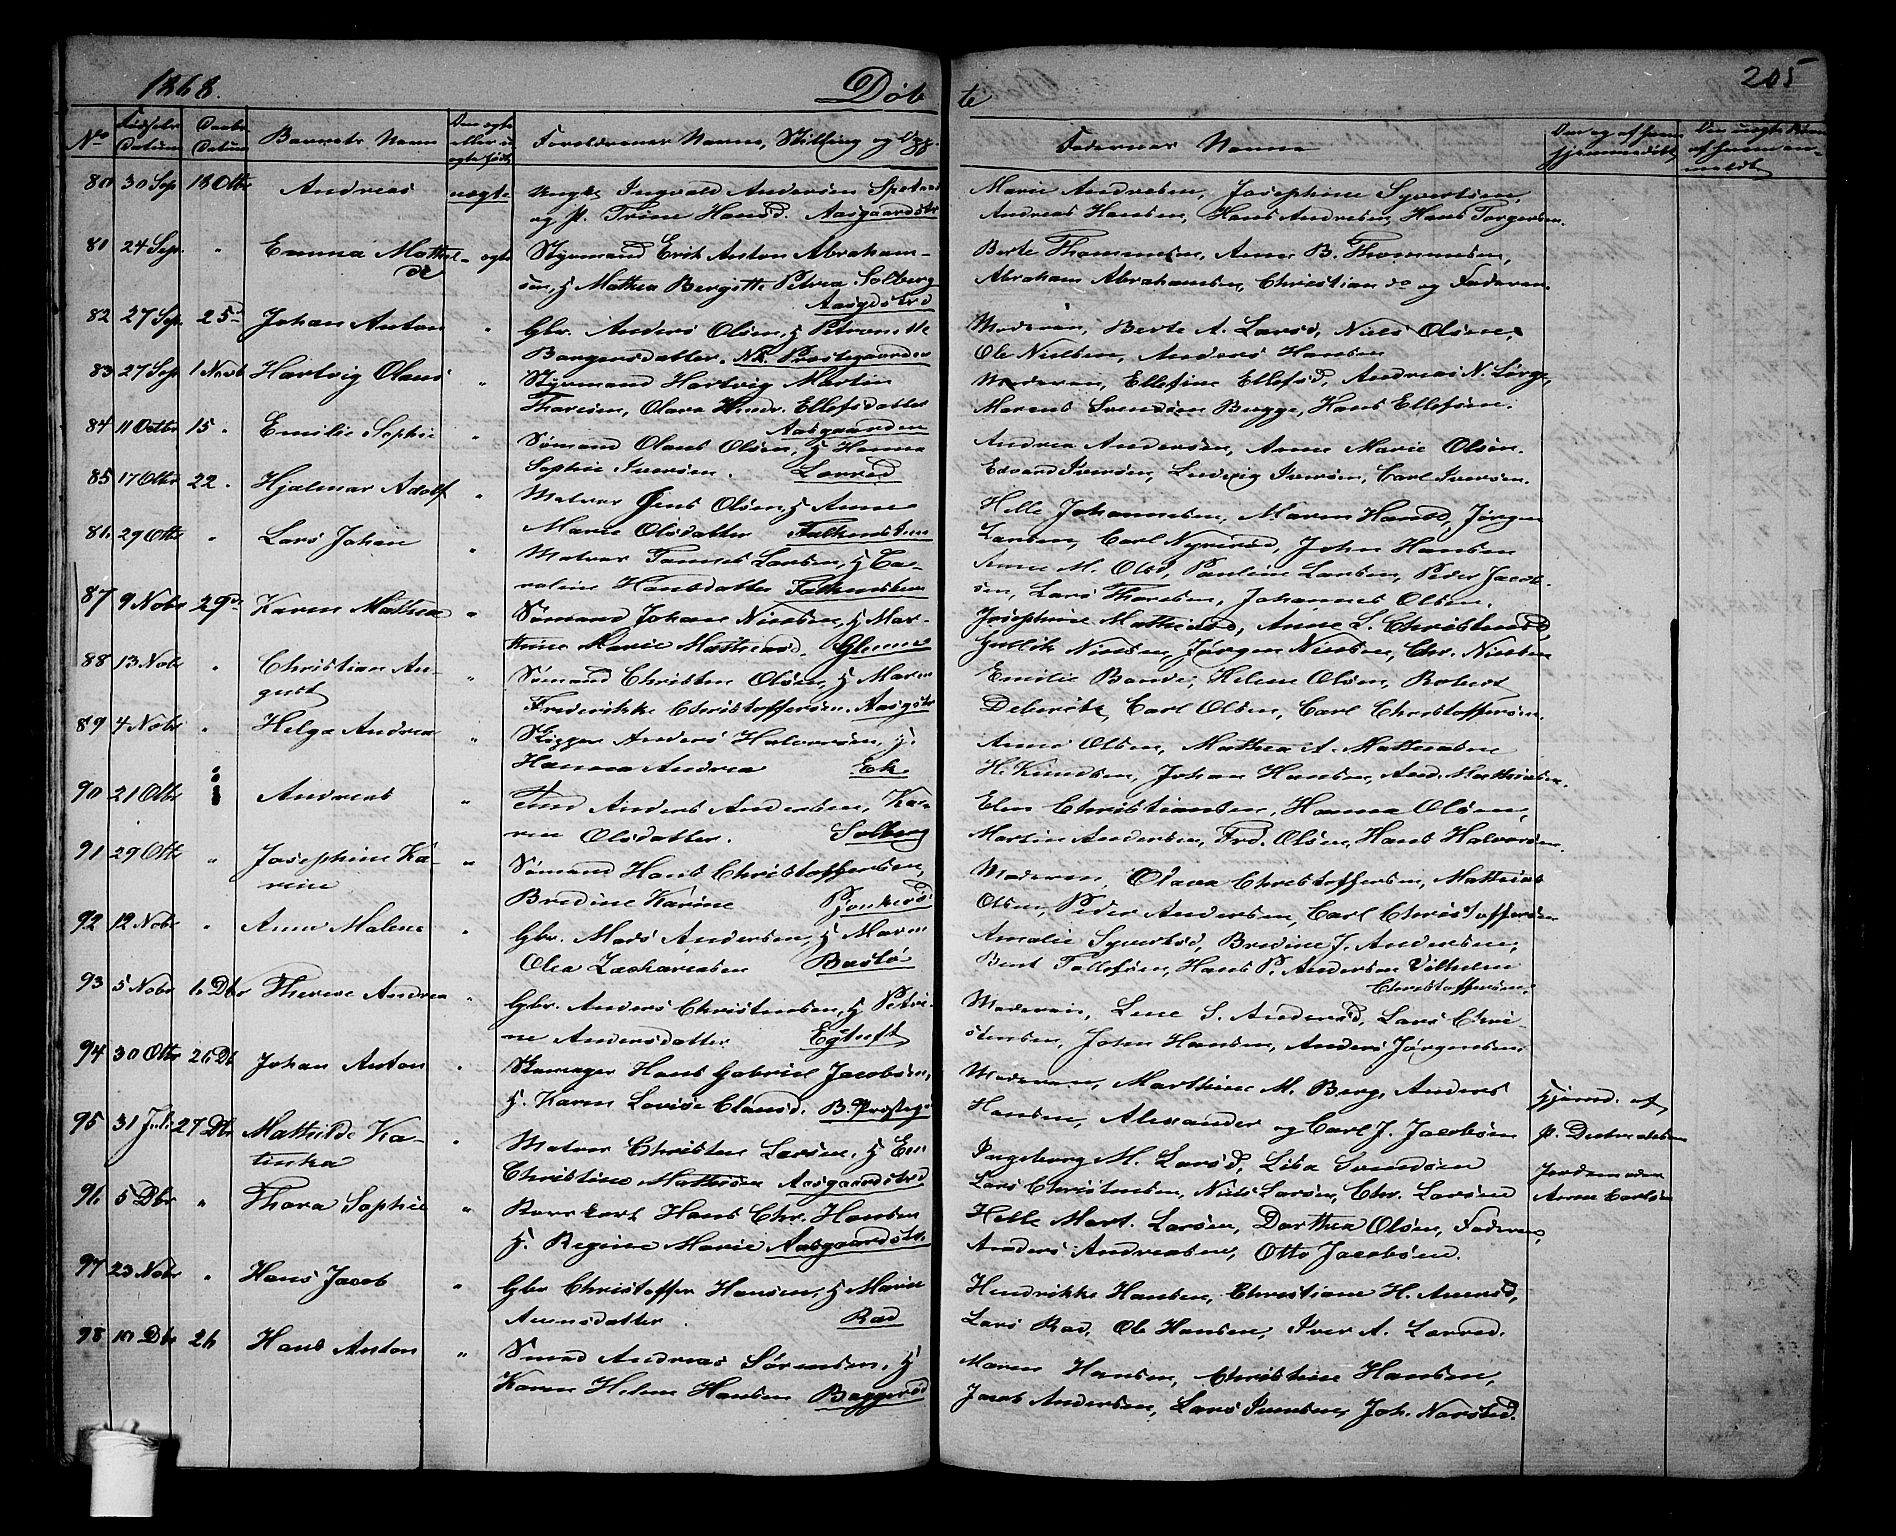 1868.
Døb
te
205
No
Fødsels Datum
Daabs Datum
Barnets Navn
Om ægte eller uægte født
Forældrenes Navne, Stilling og
Faddernes Navne
80 30 Sep 18 Otbr Andreas uægte Ungk. Ingvald Andersen
og p. Trine Hansd. Aasgaardstr
Marie Andresen, Josephine Syvertsen,
Andreas Hansen, Hans Andresen, Hans Torgersen.
81 24 Sep. " Emma Mathil- ægte Styrmand Erik Anton Abraham-
de sen, H Mathea Bergitte Petrea Solberg
Aasgdstrd
Berte Thommesen, Anne B. Thommesen,
Abraham Abrahamsen, Christian do og Faderen.
82 27 Sep. 25 Johan Anton " Gbr. Anders Olsen, H Petronelle
Borgersdatter. Nk. Præstegaarden
Moderen, Berte A. Larsd, Niels Olsen,
Ole Nielsen, Anders Hansen
83 27 Sep 1 Novb Hartvig Olaus " Styrmand Hartvig Martin
Thoresen, Olava Hendr. Ellefsdatter
Aasgaarden
Moderen, Ellefine Ellefsd, Andreas N.
Marens Svendsen Bugge, Hans Ellefsen.
84 11 Octbr 15 " Emilie Sophie " Sømand Olaus Olsen, H Hanna
Sophie Iversen. Lorred
Andrea Andersen, Anne Marie Olsen.
Edvard Iversen, Ludvig Iversen, Carl Iversen.
85 17 Otbr 22 " Hjalmar Adolf " Matros Jens Olsen, H Anne
Marie Olsdatter Falkensten
Helle Johannesen, Maren Hansd, Jørgen
Larsen, Carl Nyrerød, John Hansen
86 29 Otbr " Lars Johan " Matros Tannes Larsen, H Ca-
roline Hansdatter Falkensten
Anne M. Olsd, Pauline Larsen, Peder Jacob-
sen, Lars Thoresen, Johannes Olsen.
87 9 Nobr 29 Karen Mathea " Sømand Johan Nielsen, H Mar-
thine Marie Mathiasd. Glenne
Josephine Mathiasd, Anne L. Christensd,
Gullik Nielsen, Jørgen Nielsen, Chr. Nielsen
88 13 Nobr " Christian Au- " Sømand Christen Olsen, H Maren
gust Frederikke Christoffersen. Aasgstr
Emilie Bande, Helene Olsen, Robert
Carl Olsen, Carl Christoffersen.
89 4 Nobr " Helga Andrea " Skipper Anders Halvorsen, H.
Hanna Andrea Ek.
Anne Olsen, Mathea A. Mathiasen
H. Knudsen, Johan Hansen, And. Mathiasen.
90 21 Otbr Andreas " Anders Andersen, Ka-
ren Olsdatter. Solberg
Elen Christiansen, Hanna Olsen,
Martin Andersen, Frd. Olsen, Hans Halvorsen.
91 29 Otbr " Josephine Ka- " Sømand Hans Christoffersen,
rine Bredine Karine
Moderen, Olava Christoffersen, Mathias
Olsen, Peder Andersen, Carl Christoffersen
92 12 Nobr " Anne Malene " Gbr. Mads Andersen, H Maren
Olea Zachariasen Bastø
Amalie Syvertsd, Bredine J. Andersen,
Bent Tollefsen, Hans P. Andersen Vilhelm
Christoffersen.
93 5 Nobr 6 Dbr Therese Andrea " Gbr. Anders Christensen, H Petri-
ne Andersdatter
Moderen, Lene S. Andersd, Lars Chri-
stensen, John Hansen, Anders Jørgensen
94 30 Otbr 26 Db Johan Anton " Skomager Hans Gabriel Jacobsen,
H. Karen Lovise Clausd. B. Præsteg.
Moderen, Marthine M. Berg, Anders
Hansen, Alexander og Carl J. Jacobsen
95 31 Juli 27 Dbr Mathilde Ka- " Matros Christen Larsen, H
tinka Christine Mathisen Aasgaardstrd
Ingeborg M. Larsd, Lisa Svendsen
Lars Christensen, Niels Larsen, Chr. Larsen
Hjemd. af
p.
Jordemoder
Anne Carlsen
96 5 Dbr " Thora Sophie " Hans Chr. Hansen
H. Regine Marie Aasgaardstr.
Helle Mart. Larsen, Dorthea Olsen, Faderen,
Anders Andreasen, Otto Jacobsen.
97 23 Nobr " Hans Jacob " Gbr Christoffer Hansen, H Maren
Rad
Hendrikke Hansen, Christiane H.
Lars Rad, Ole Hansen, Iver A. Lorred.
98 10 Dbr 26 Hans Anton " Smed Andreas Sørensen, H
Karen Helene Hansen Baggerød
Maren Hansen, Christine Hansen,
Jacob Andersen, Lars Iversen, Joh. Norsted.